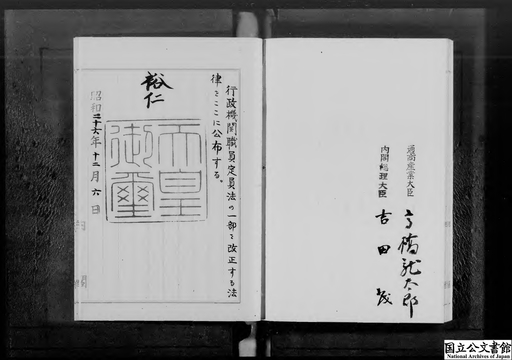 通商産業大臣
高橋龍太郎
内閣総理大臣
吉田茂
行政機関職員定員法の一部を改正する法
律をここに公布する。
裕仁
天皇
御璽
昭和二十六年十二月六日
国立公文書館
National Archives of Japan